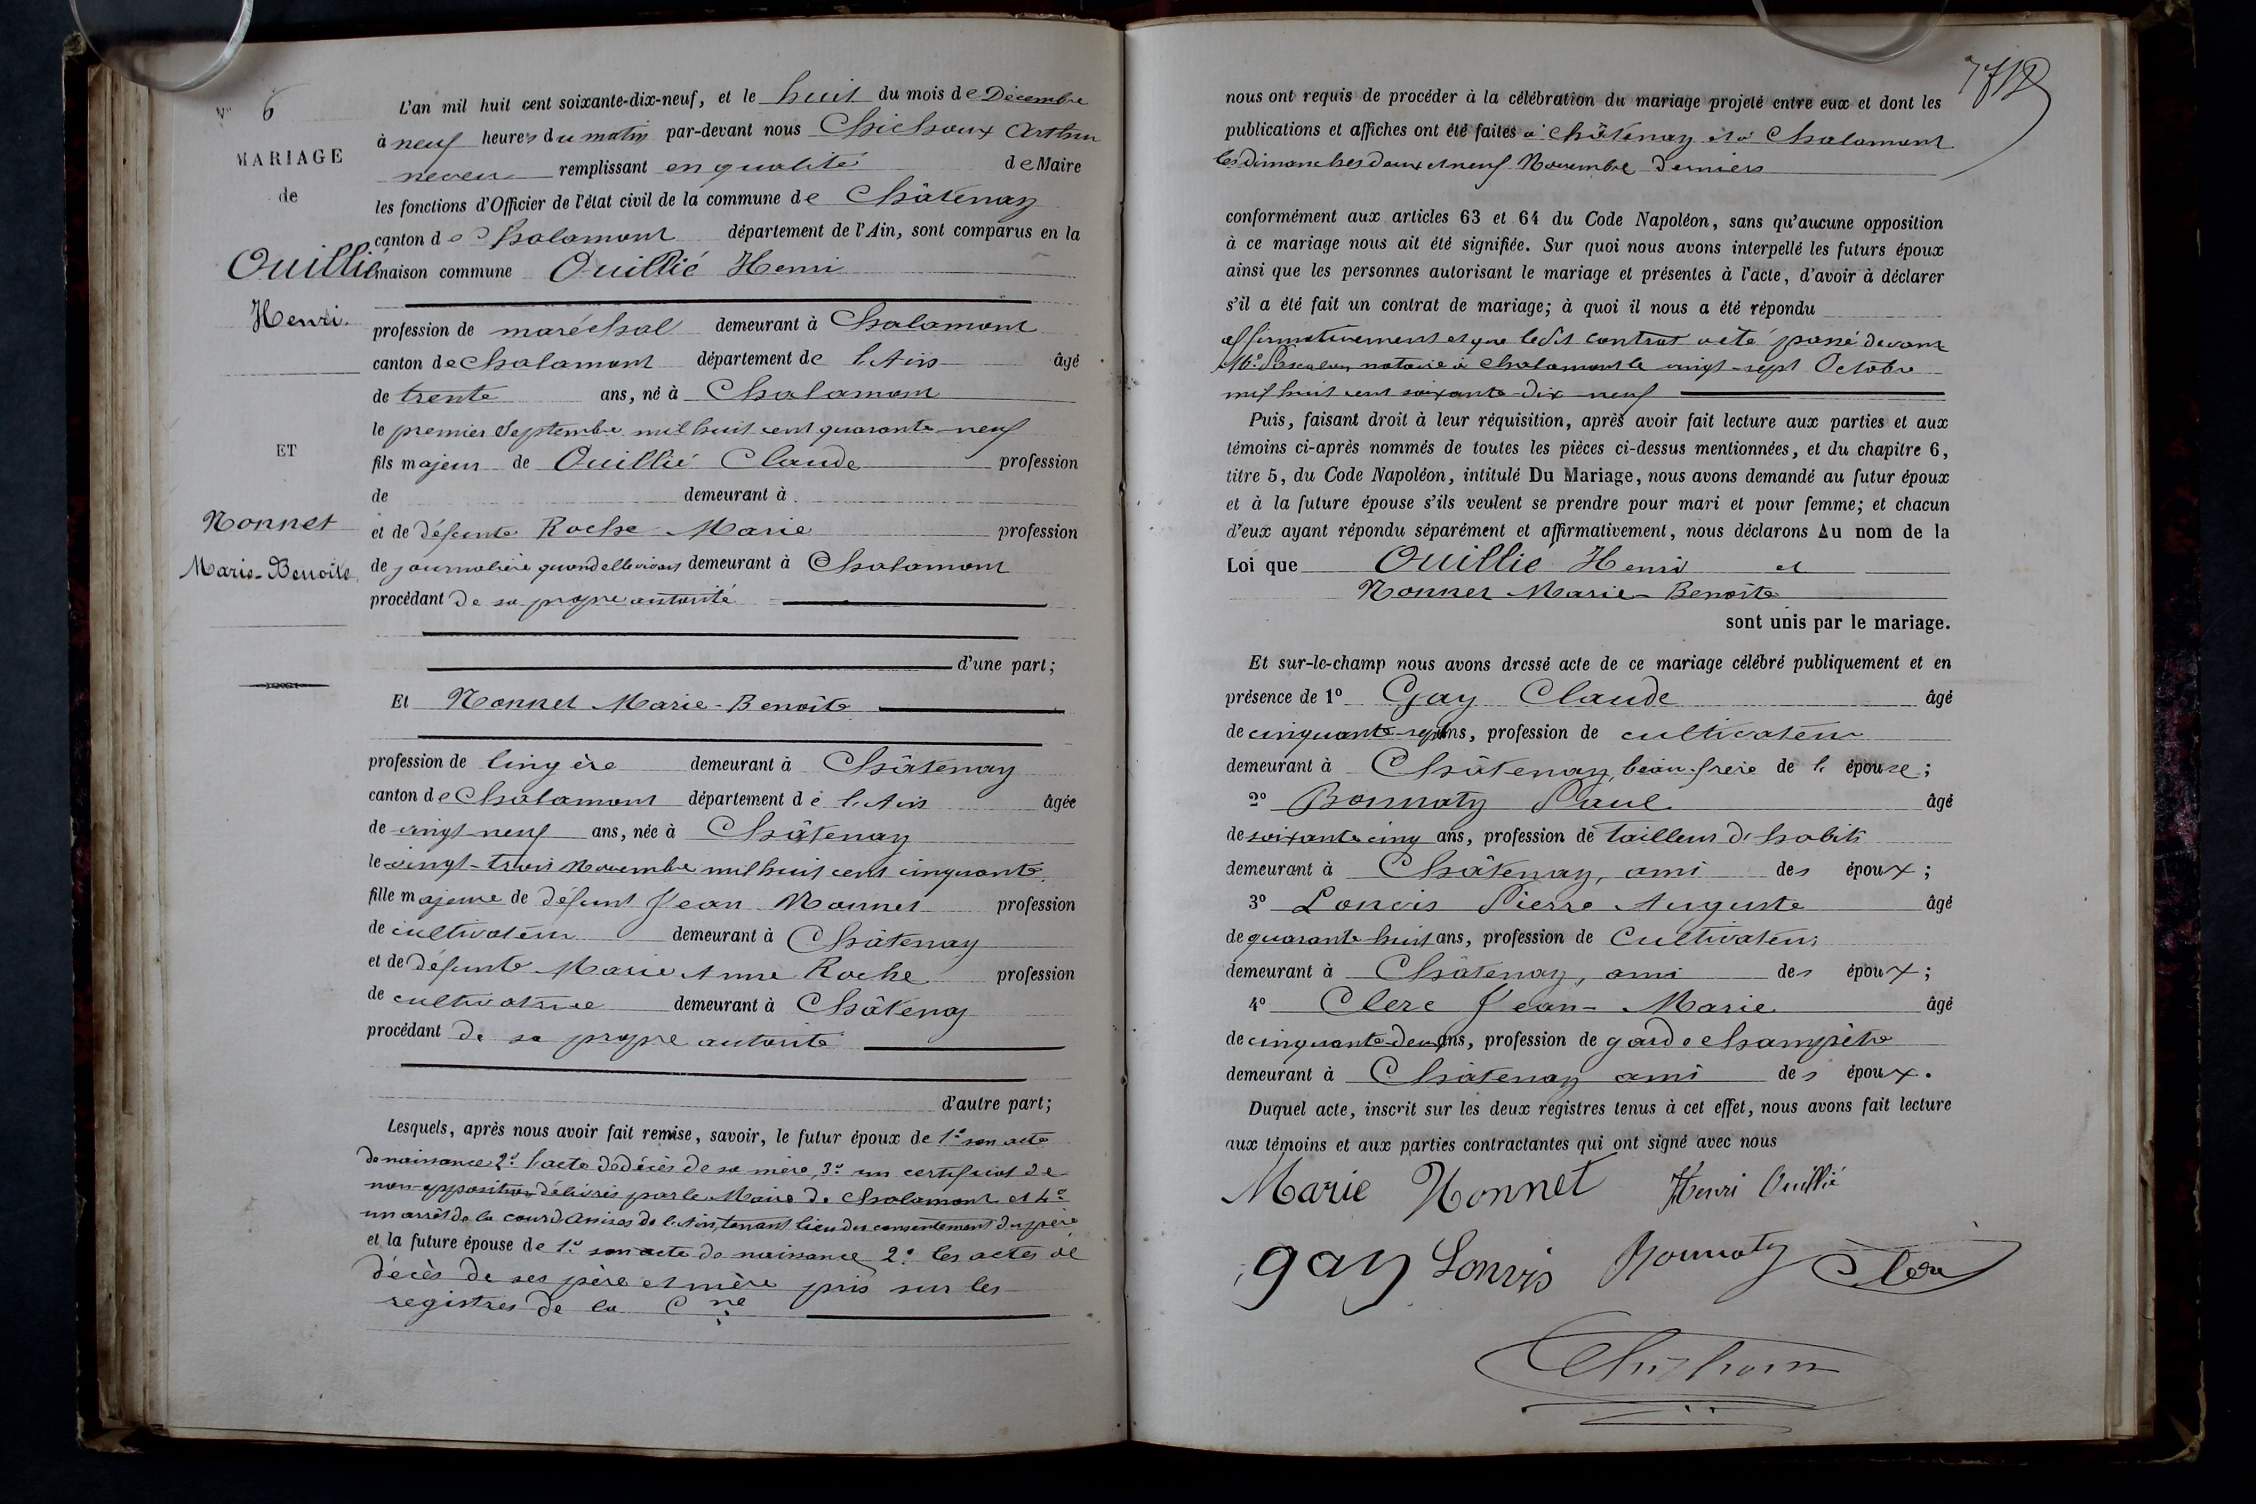 N° 6
MARIAGE
de
Ouillié
Henri
ET
Nonnet
Marie-Benoite
L'an mil huit cent soixante-dix-neuf, et le huit du mois de Décembre
à neuf heures du matin par-devant nous Chichoux Arthur
neveu remplissant en qualité de Maire
les fonctions d'Officier de l'état civil de la commune de Châtenay
canton de Chalamont département de l'Ain, sont comparus en la
maison commune Ouillié Henri
profession de maréchal demeurant à Chalamont
canton de Chalamont département de l'Ain âgé
de trente ans, né à Chalamont
le premier Septembre mil huit cent quarante-neuf
fils majeur de Ouillié Claude profession
de demeurant à
et de défunte Roche Marie profession
de journalière quand elle vivait demeurant à Chalamont
procédant de sa propre autorité
d'une part;
Et Nonnet Marie-Benoîte
profession de lingère demeurant à Châtenay
canton de Chalamont département de l'Ain âgée
de vingt neuf ans, née à Châtenay
le vingt-trois Novembre mil huit cent cinquante
fille majeure de défunt Jean Nonnet profession
de cultivateur demeurant à Châtenay
et de défunte Marie Anne Roche profession
de cultivatrice demeurant à Châtenay
procédant de sa propre autorité
d'autre part;
Lesquels, après nous avoir fait remise, savoir, le futur époux de 1° son acte
de naissance 2° l'acte de décès de sa mère, 3° un certificat de
non opposition délivrés par le Maire de Chalamont et 4°
un arrêt de la cour d'assises de l'Ain, tenant lieu du consentement du père
et la future épouse de 1° son acte de naissance 2° les actes de
décès de ses père et mère pris sur les
registres de la Cne
nous ont requis de procéder à la célébration du mariage projeté entre eux et dont les
publications et affiches ont été faites à Châtenay et à Chalamont
les dimanches deux et neuf Novembre derniers
conformément aux articles 63 et 64 du Code Napoléon, sans qu'aucune opposition
à ce mariage nous ait été signifiée. Sur quoi nous avons interpellé les futurs époux
ainsi que les personnes autorisant le mariage et présentes à l'acte, d'avoir à déclarer
s'il a été fait un contrat de mariage; à quoi il nous a été répondu
affirmativement et que ledit contrat a été passé devant
Me notaire à Chalamont le vingt-sept Octobre
mil huit cent soixante-dix-neuf
Puis, faisant droit à leur réquisition, après avoir fait lecture aux parties et aux
témoins ci-après nommés de toutes les pièces ci-dessus mentionnées, et du chapitre 6,
titre 5, du Code Napoléon, intitulé Du Mariage, nous avons demandé au futur époux
et à la future épouse s'ils veulent se prendre pour mari et pour femme; et chacun
d'eux ayant répondu séparément et affirmativement, nous déclarons Au nom de la
Loi que Ouillié Henri et
Nonnet Marie-Benoîte
sont unis par le mariage.
Et sur-le-champ nous avons dressé acte de ce mariage célébré publiquement et en
présence de 1° Gay Claude âgé
de cinquante-sept ans, profession de cultivateur
demeurant à Châtenay, beau-frère de l'épouse;
2° Bonnaty Paul âgé
de soixante cinq ans, profession de Tailleur d'habits
demeurant à Châtenay, ami des époux;
3° Louvis Pierre Auguste âgé
de quarante huit ans, profession de Cultivateur
demeurant à Châtenay, ami des époux;
4° Clerc Jean-Marie âgé
de cinquante-deux ans, profession de garde champêtre
demeurant à Châtenay ami des époux.
Duquel acte, inscrit sur les deux registres tenus à cet effet, nous avons fait lecture
aux témoins et aux parties contractantes qui ont signé avec nous
Marie Nonnet Henri Ouillié
gay Louvis Bonnaty Clerc
Chichoux